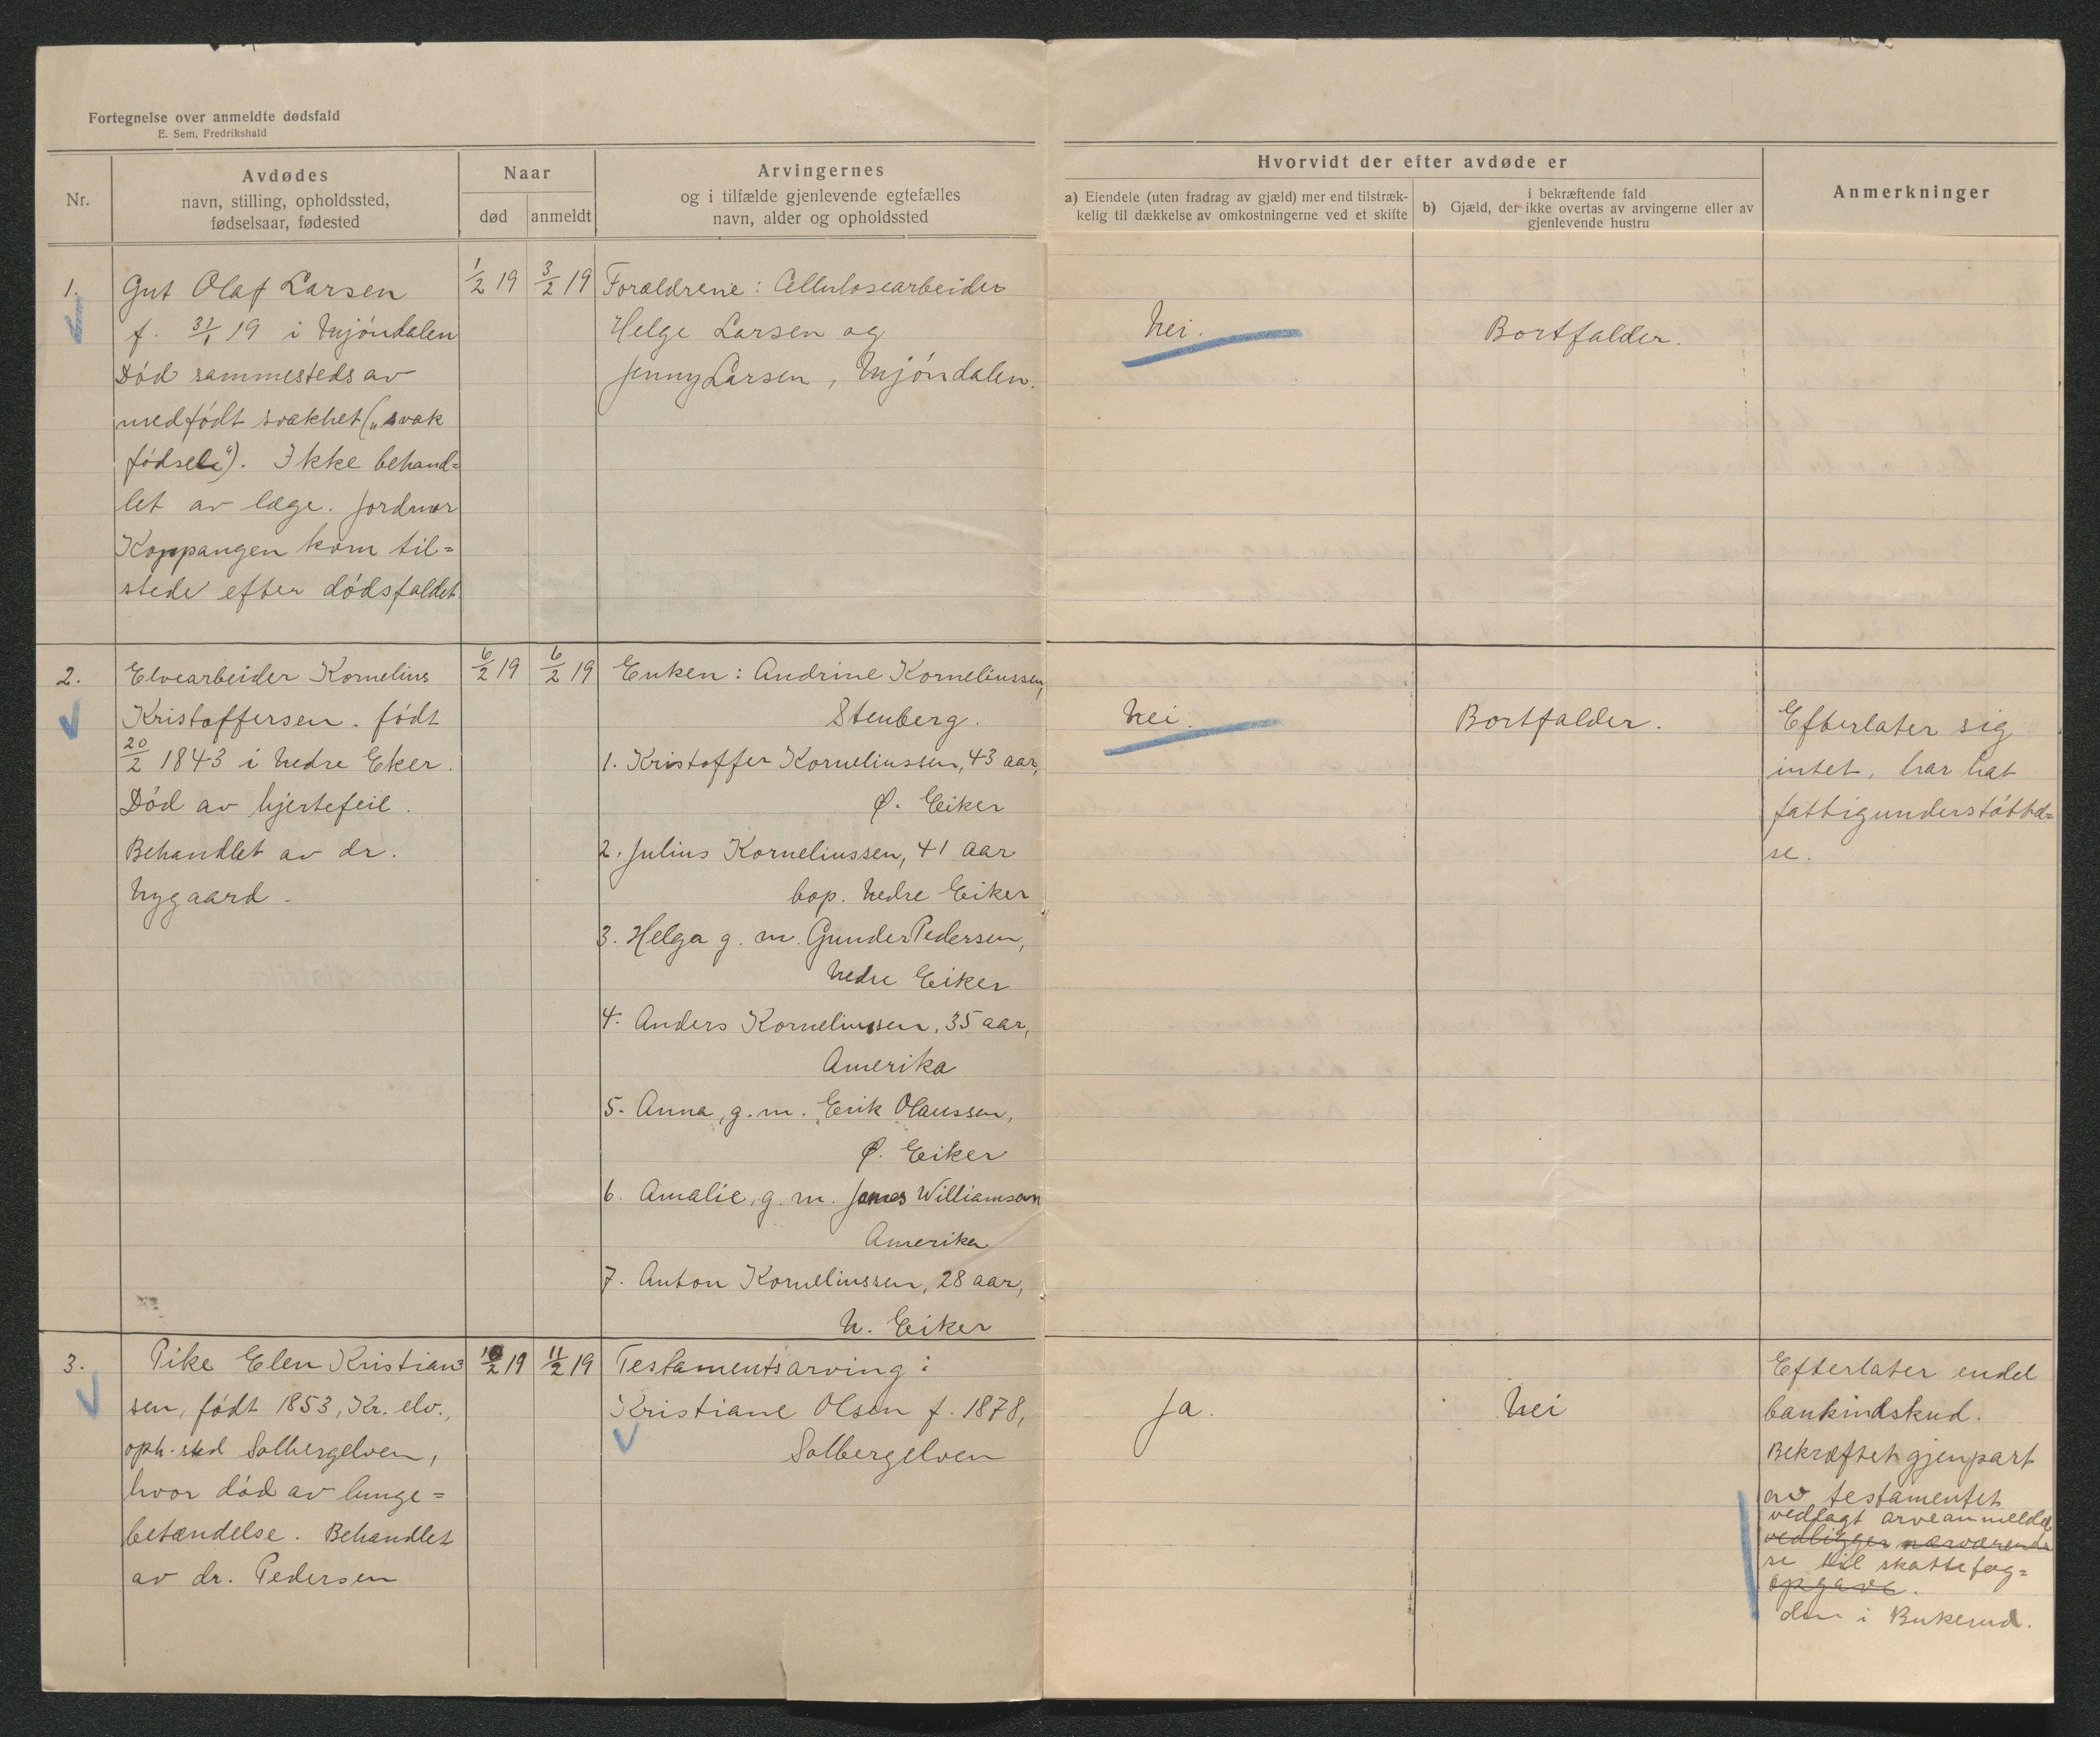 Fortegnelse over anmeldte dødsfald
E. Sem, Fredrikshald
Nr.
Avdødes
navn, stilling, opholdssted,
fødselsaar, fødested
Naar
død
anmeldt
Arvingernes
og i tilfælde gjenlevende egtefælles
navn, alder og opholdssted
Hvorvidt der efter avdøde er
a) Eiendele (uten fradrag av gjæld) mer end tilstræk-
kelig til dækkelse av omkostningerne ved et skifte
i bekræftende fald
b) Gjæld, der ikke overtas av arvingerne eller av
gjenlevende hustru
Anmerkninger
1.
Gut Olaf Larsen
f. 31/1 19 i Mjöndalen
Död sammesteds av
medfödt svakhet („svak
födsel“). Ikke behand=
let av læge. Jordmor
Koppangen kom til=
stede efter dödsfaldet.
1/2 19
3/2 19
Forældrene: Cellulosearbeider
Helge Larsen og
Jenny Larsen, Mjöndalen.
Nei.
Bortfalder.
2.
Elvearbeider Kornelius
Kristoffersen. födt
20/2 1843 i Nedre Eker.
Död av hjertefeil.
Behandlet av dr.
Nygaard.
6/2 19
6/2 19
Enken: Andrine Korneliussen,
Stenberg.
1. Kristoffer Korneliussen, 43 aar,
Ø. Eiker
2. Julius Korneliussen, 41 aar
bop. Nedre Eiker
3. Helga g. m. Gunder Pedersen,
Nedre Eiker
4. Anders Korneliussen, 35 aar,
Amerika
5. Anna, g. m. Erik Olaussen,
Ø. Eiker
6. Amalie, g. m. James Williamson
Amerika
7. Anton Korneliussen, 28 aar,
N. Eiker
Nei.
Bortfalder.
Efterlater sig
intet, har hat
fattigunderstöttel=
se.
3.
Pike Elen Kristian=
sen, födt 1853, Kr. elv.,
oph. sted Solbergelven,
hvor död av lunge=
betændelse. Behandlet
av dr. Pedersen
10/2 19
11/2 19
Testamentsarving:
Kristiane Olsen f. 1878,
Solbergelven
Ja.
Nei
Efterlater endel
bankindskud.
Bekræftet gjenpart
av testamentet
vedlagt arveanmeldel
vedligger nærværende
se til skattefog=
opgave.
den i Buskerud.